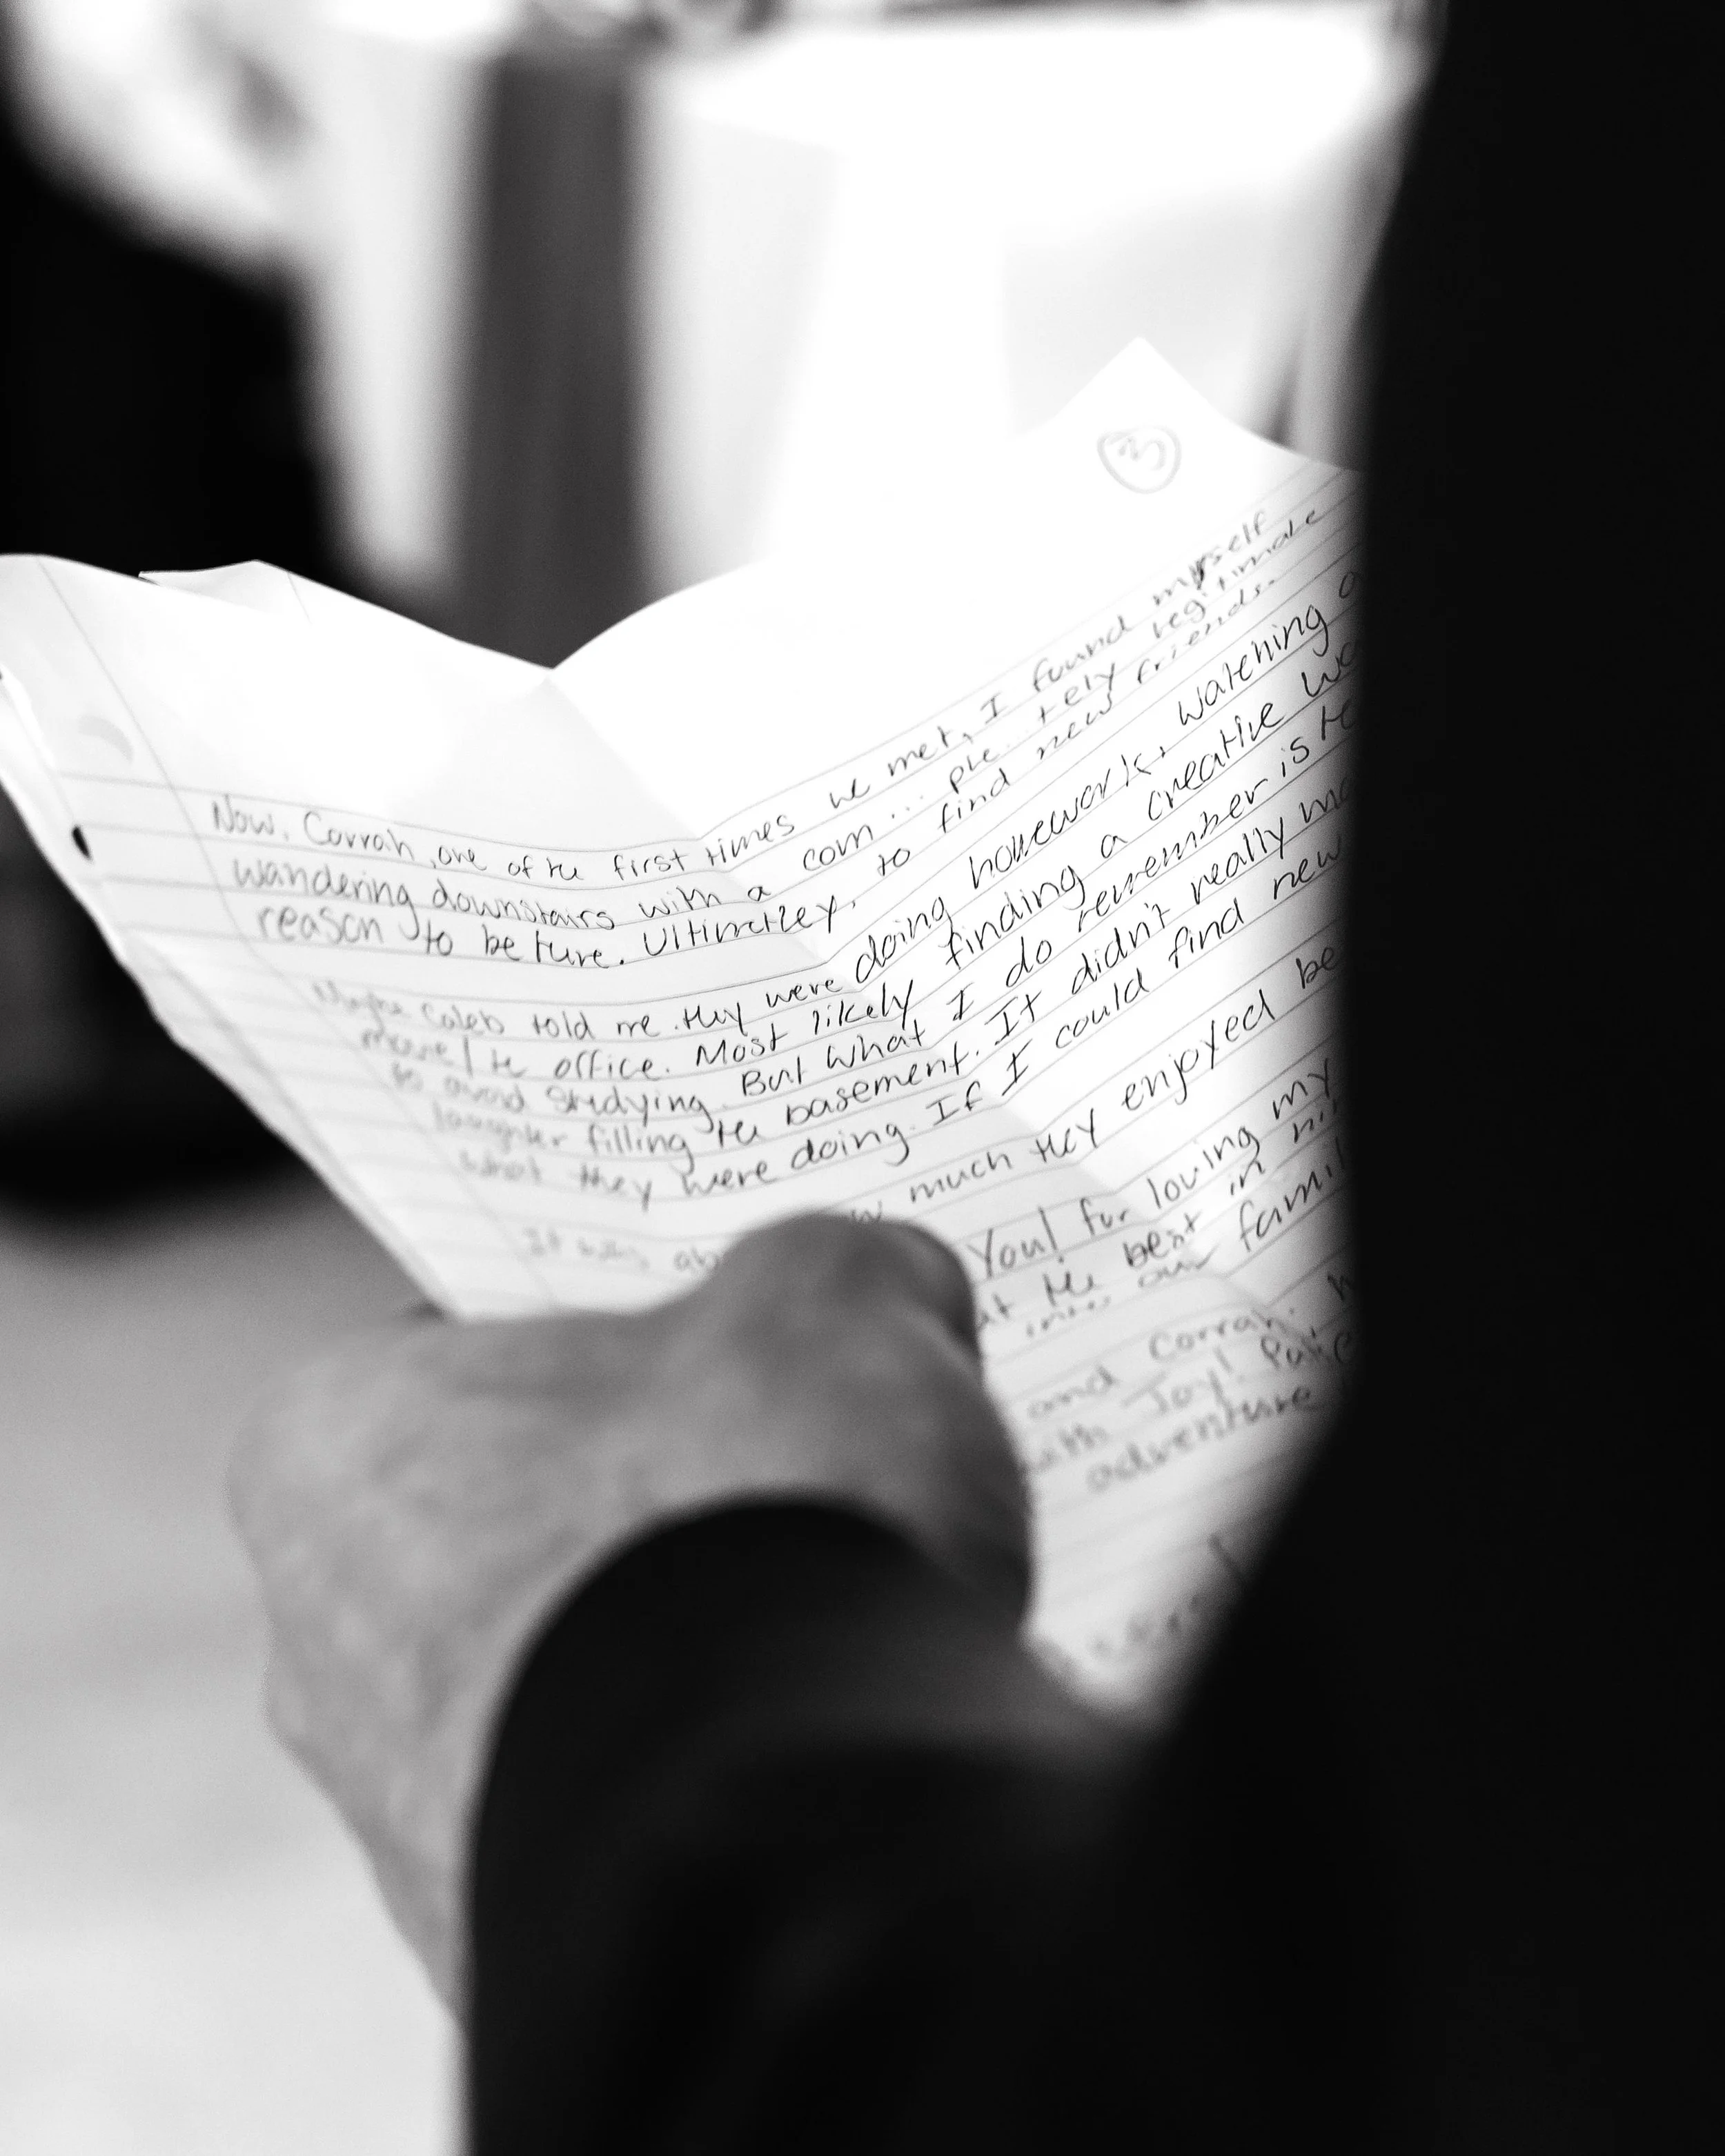 3
Now, Corrah, one of the first times we met, I found myself
wandering downstairs with a com... ple... tely legitimate
reason to be ture. Ultimatley, to find new friends.
Maybe Caleb told me they were doing homework, watching a
move/the office. Most likely finding a creative
to avoid studying. But what I do remember is
laughter filling the basement. It didn't really
what they were doing. If I could find new
It was much they enjoyed be
You! for loving my
the best in
into our
and Corrah.
with Joy!
adventure